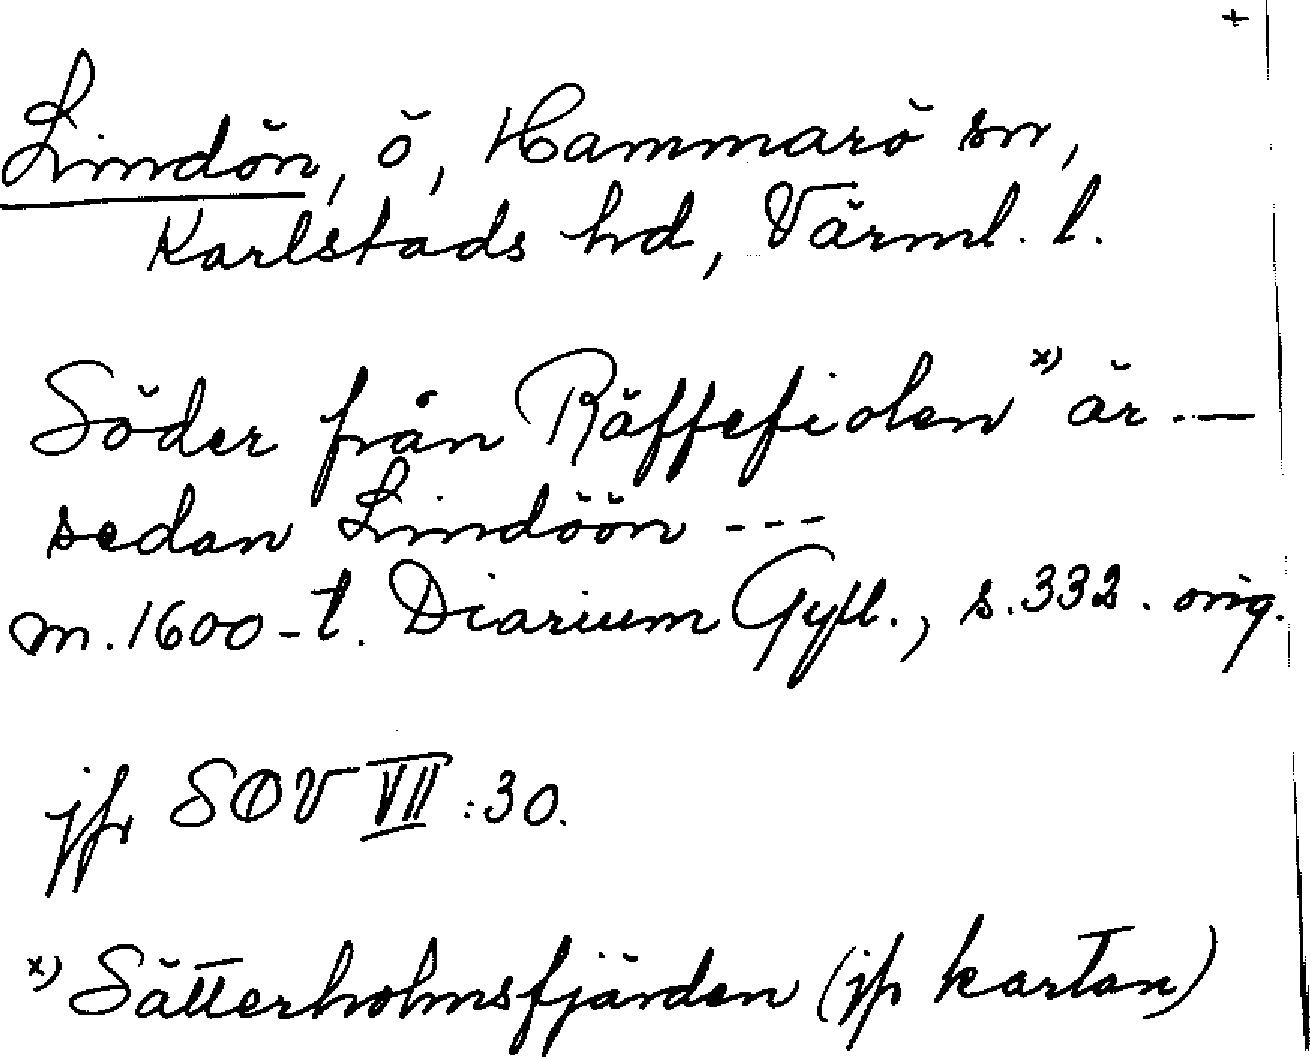 +
Lindön, ö, Hammarö sn,
Karlstads hd, Värml. l.
Söder från Räffefiolen x) är ---
sedan Lindöön ---
m. 1600-t. Diarium Gyll., s. 332. orig.
jfr SOV VII:30.
x) Sätterholmsfjärden (jfr kartan)